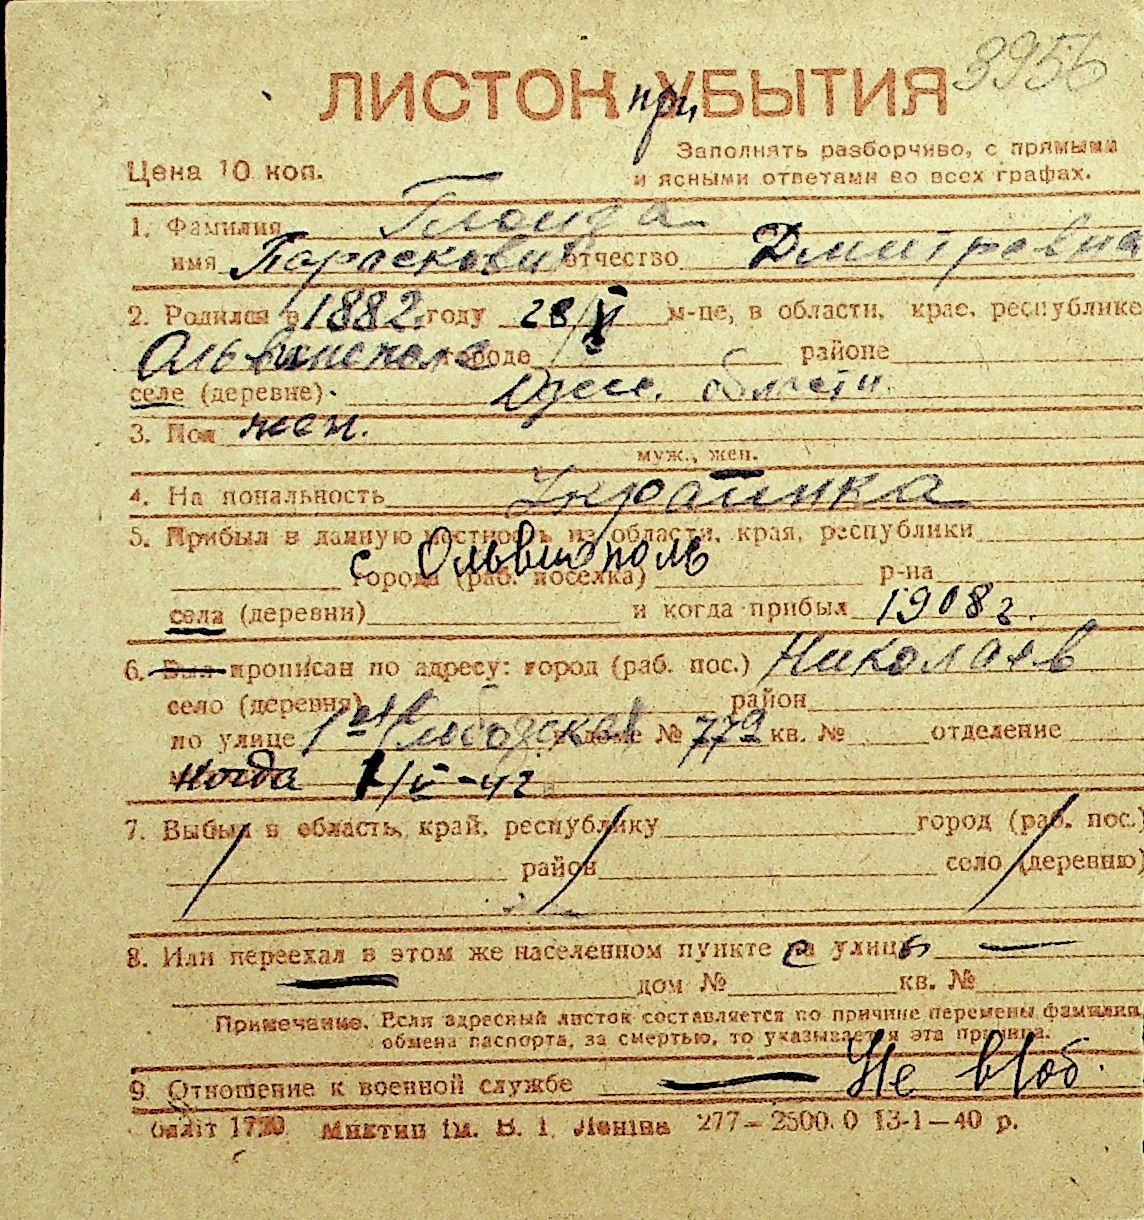 3956
ЛИСТОК при УБЫТИЯ
Заполнять разборчиво, с прямыми
Цена 10 коп.
и ясными ответами во всех графах.
1. Фамилия
имя Парасковия отчество Дмитровна
2. Родился в 1882 году 28/ м-це, в области, крае, республике
городе районе
селе (деревне) Одесс. области
3. Пол жен.
муж., жен.
4. На иональность Украинка
5. Прибыл в данную местность из области, края, республики
с. Ольвиополь
города (раб. поселка) р-на
села (деревни) и когда прибыл 1908 г.
6. Был прописан по адресу: город (раб. пос.) Николаев
село (деревня) район
по улице 1ая Слободская доме № 779 кв. № отделение
когда
7. Выбыл в область, край, республику город (раб. пос.)
район село (деревню)
8. Или переехал в этом же населенном пункте с улицы —
— дом № кв. №
Примечание. Если адресный листок составляется по причине перемены фамилии,
обмена паспорта, за смертью, то указывается эта причина.
9. Отношение к военной службе — Не в/об.
ім. В. І. Леніна 277—2500.0 13-1—40 р.